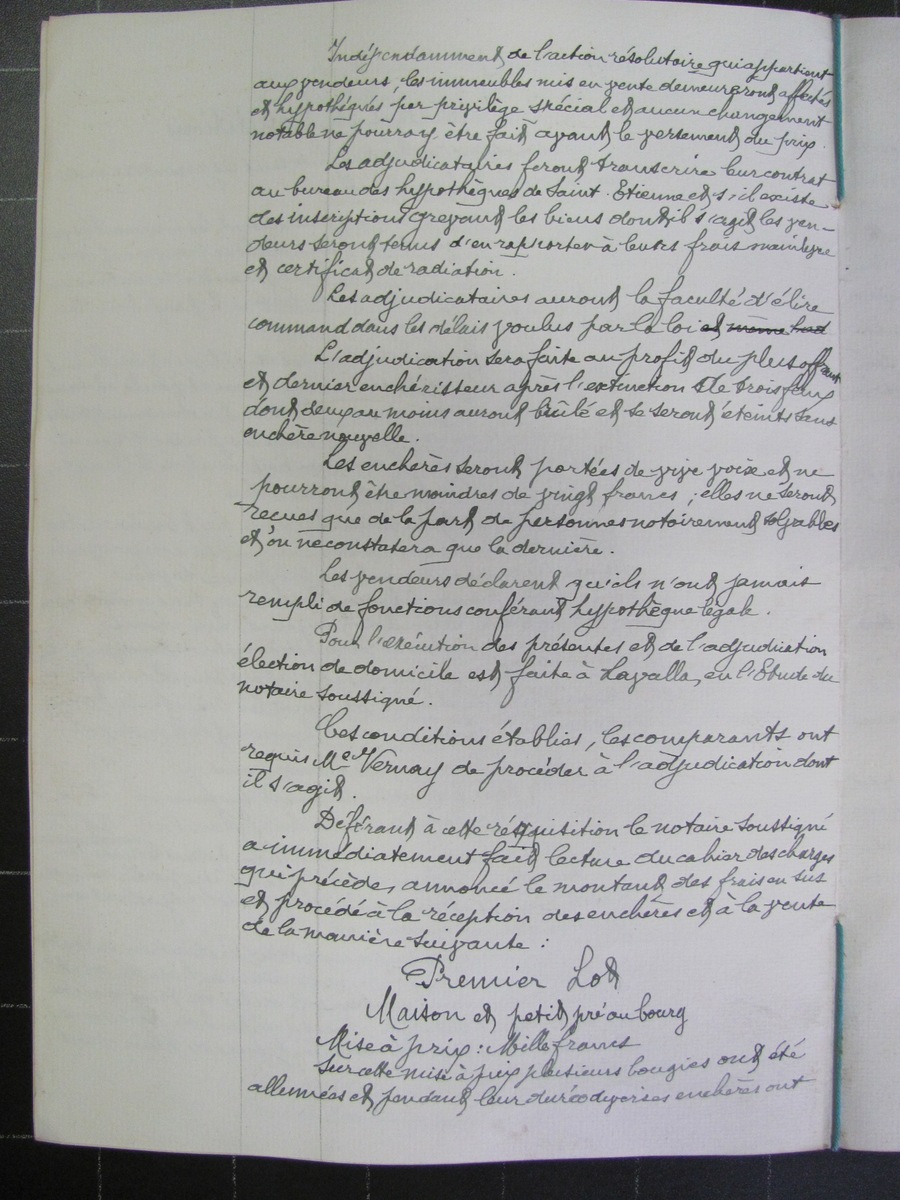 Indépendamment de l'action résolutoire qui appartient
aux vendeurs, les immeubles mis en vente demeureront affectés
et hypothéqués par privilège spécial et aucun changement
notable ne pourra y être fait avant le versement du prix.
Les adjudicataires feront transcrire leur contrat
au bureau des hypothèques de Saint-Etienne et s'il existe
des inscriptions grevant les biens dont il s'agit les ven-
deurs seront tenus d'en rapporter à leurs frais mainlevée
et certificat de radiation.
Les adjudicataires auront la faculté d'élire
command dans les délais voulus par la loi et même
L'adjudication sera faite au profit du plus offrant
et dernier enchérisseur après l'extinction de trois feux
dont deux au moins auront brûlé et se seront éteints sans
enchère nouvelle.
Les enchères seront portées de vive voix et ne
pourront être moindres de vingt francs ; elles ne seront
reçues que de la part de personnes notoirement solvables
et on ne constatera que la dernière.
Les vendeurs déclarent qu'ils n'ont jamais
rempli de fonctions conférant hypothèque légale.
Pour l'exécution des présentes et de l'adjudication
élection de domicile est faite à Lavalla, en l'Etude du
notaire soussigné.
Ces conditions établies, les comparants ont
requis Me Vernay de procéder à l'adjudication dont
il s'agit.
Déférant à cette réquisition le notaire soussigné
a immédiatement fait lecture du cahier des charges
qui précède, annoncé le montant des frais en sus
et procédé à la réception des enchères et à la vente
de la manière suivante :
Premier Lot
Maison et petit pré au bourg
Mise à prix : Mille francs
Sur cette mise à prix plusieurs bougies ont été
allumées et pendant leur durée diverses enchères ont